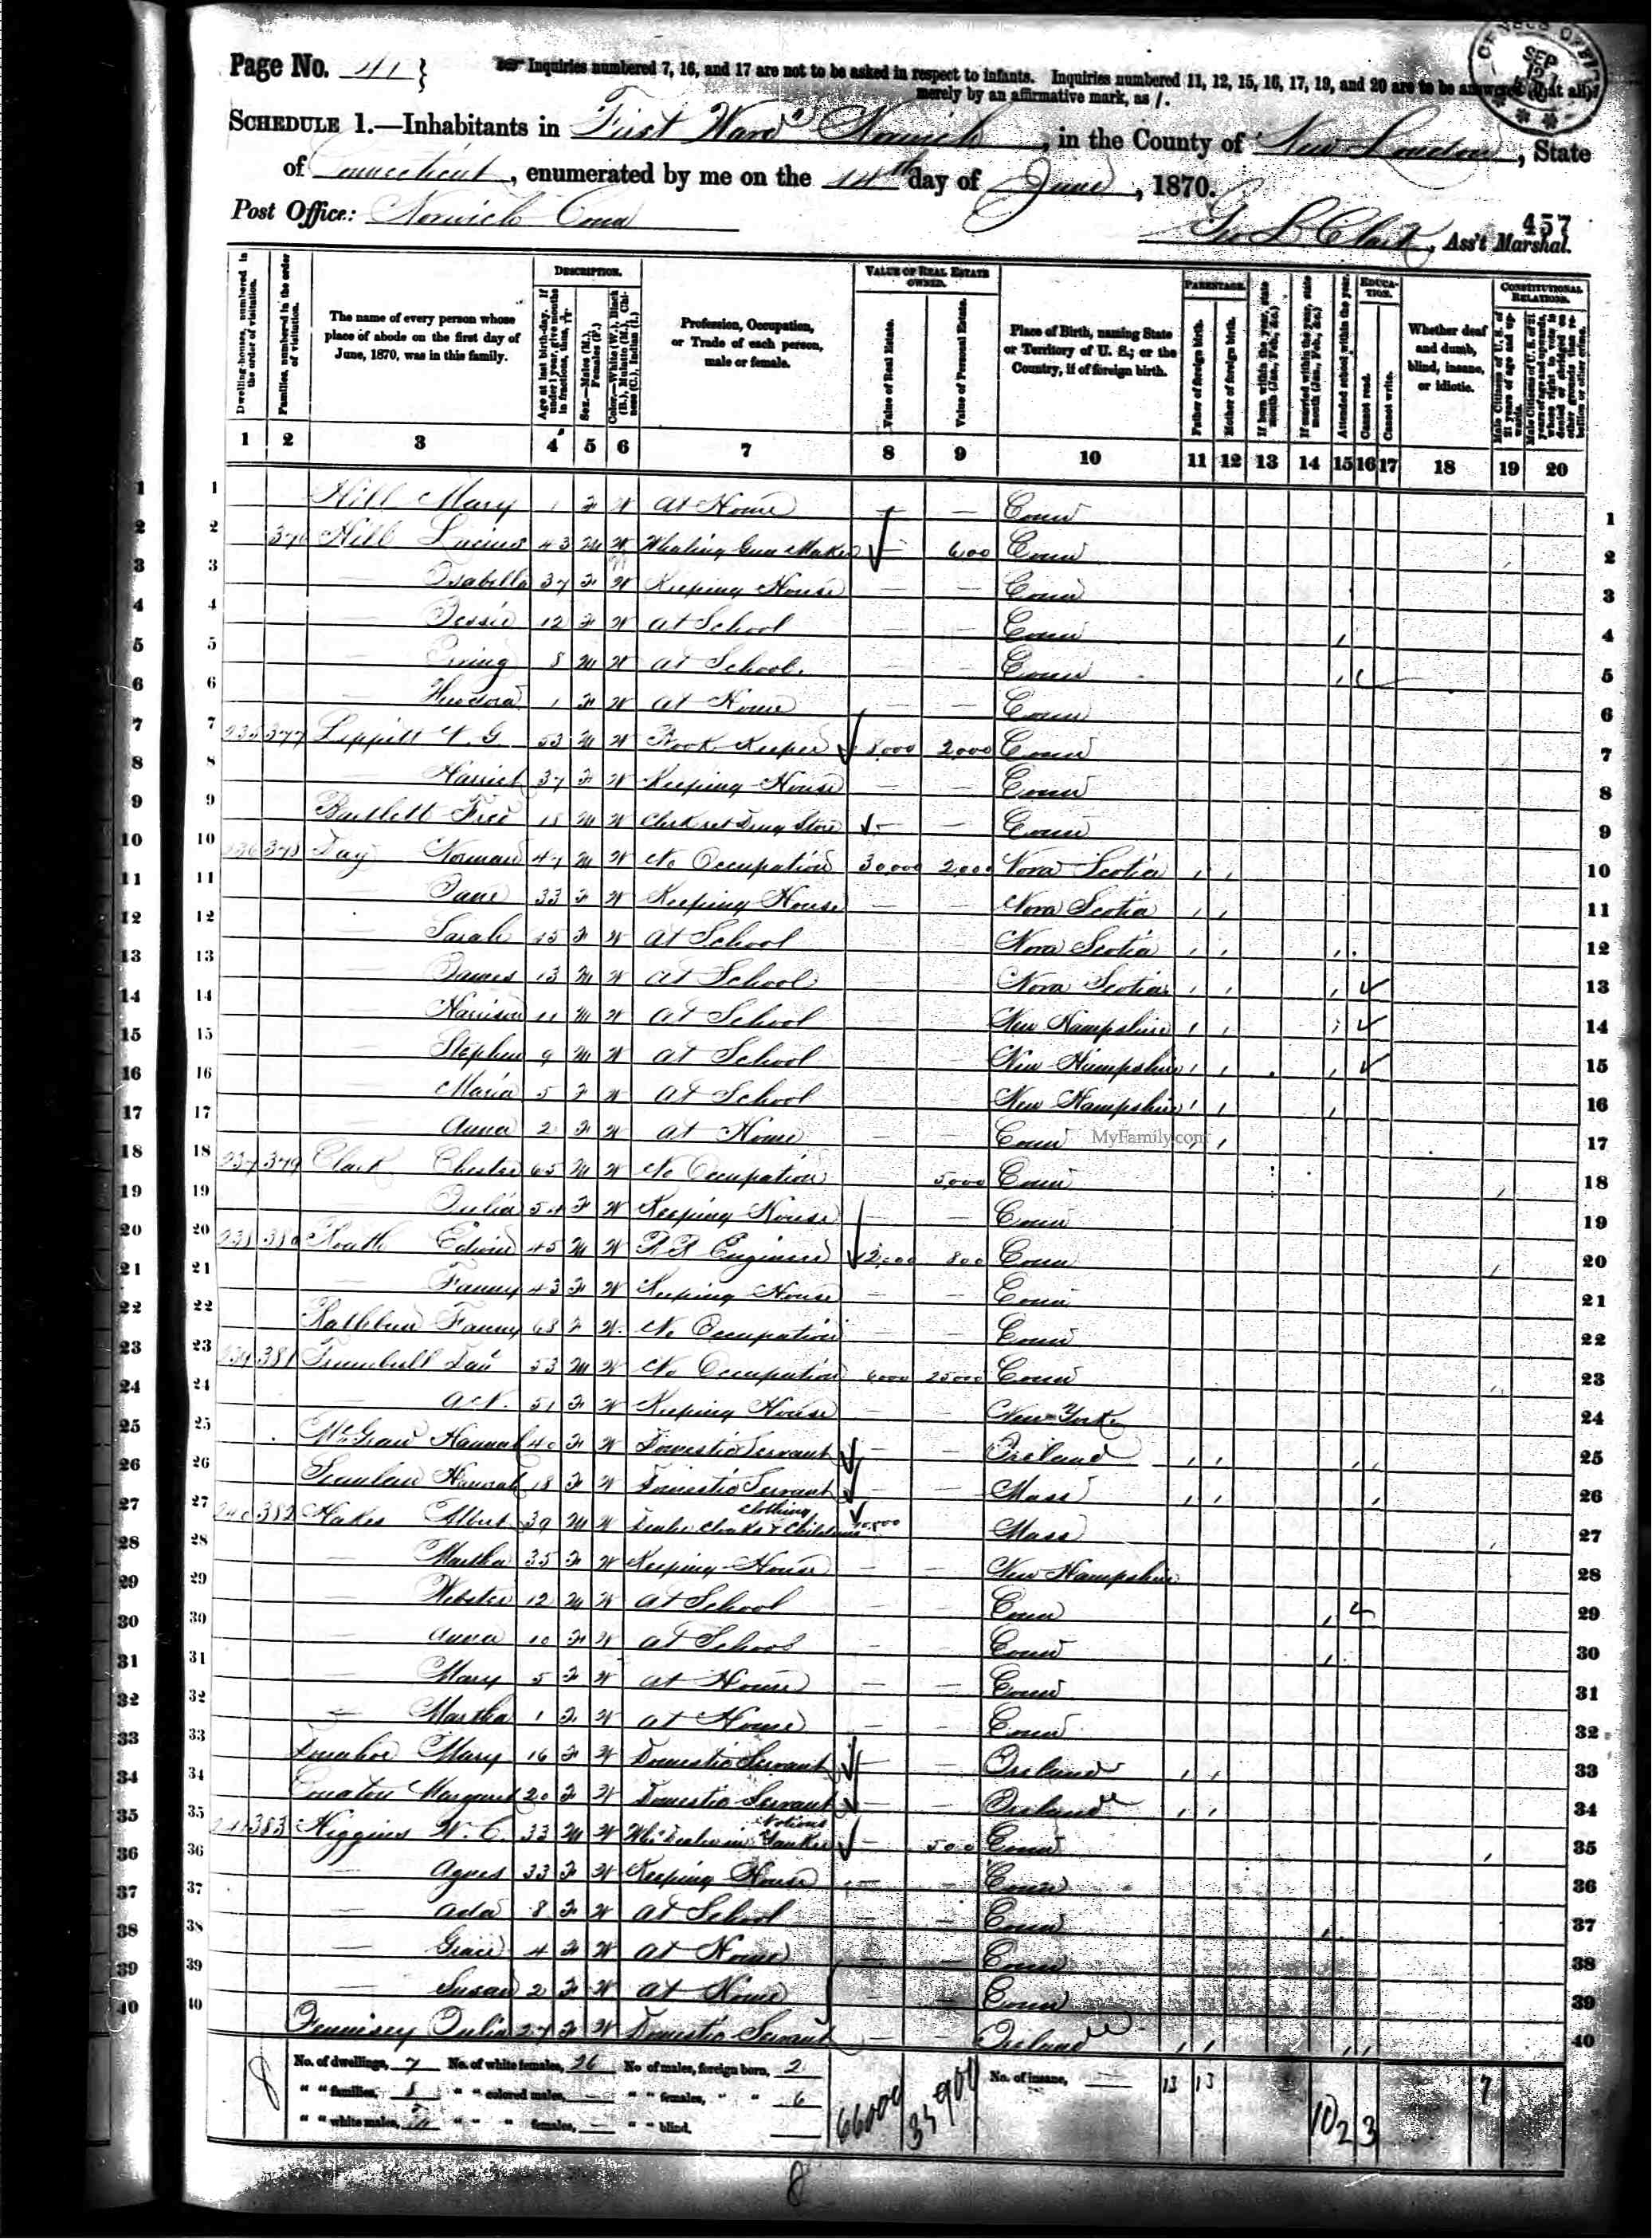 Page No. 41 } Inquiries numbered 7, 16, and 17 are not to be asked in respect to infants. Inquiries numbered 11, 12, 15, 16, 17, 19, and 20 are to be answered (if at all)
merely by an affirmative mark, as /.
SCHEDULE 1.—Inhabitants in First Ward Norwich, in the County of New London, State
of Connecticut, enumerated by me on the 14th day of June, 1870.
457
Post Office: Norwich Conn
Geo L Clark, Ass't Marshal.
Dwelling-houses, numbered in the order of visitation.
Families, numbered in the order of visitation.
The name of every person whose place of abode on the first day of June, 1870, was in this family.
DESCRIPTION.
Age at last birth-day. If under 1 year, give months in fractions, thus,
Sex.—Males (M.), Females (F.)
Color.—White (W.), Black (B.), Mulatto (M.), Chinese (C.), Indian (I.)
Profession, Occupation, or Trade of each person, male or female.
VALUE OF REAL ESTATE OWNED.
Value of Real Estate.
Value of Personal Estate.
Place of Birth, naming State or Territory of U. S.; or the Country, if of foreign birth.
PARENTAGE.
Father of foreign birth.
Mother of foreign birth.
If born within the year, state month (Jan., Feb., &c.)
If married within the year, state month (Jan., Feb., &c.)
Attended school within the year.
EDUCATION.
Cannot read.
Cannot write.
Whether deaf and dumb, blind, insane, or idiotic.
CONSTITUTIONAL RELATIONS.
Male Citizens of U. S. of 21 years of age and upwards.
1 2 3 4 5 6 7 8 9 10 11 12 13 14 15 16 17 18 19 20
1 Hill Mary 1 F W At Home — — Conn 1
2 376 Hill Lucius 43 M W Whaling Gun Maker — 600 Conn 2
3 — Isabella 37 F W Keeping House — — Conn 3
4 — Jessie 12 F W At School — — Conn / 4
5 — 8 M W At School — — Conn / 5
6 — Theodora 1 F W At Home — — Conn 6
7 235 377 Lippitt 53 M W Book Keeper 8,000 2,000 Conn 7
8 — Harriet 37 F W Keeping House — — Conn 8
9 Bartlett Fred 18 M W Clerk ret Drug Store — — Conn 9
10 236 378 Day Norman 47 M W No Occupation 30,000 2,000 Nova Scotia / / 10
11 — Jane 33 F W Keeping House — — Nova Scotia / / 11
12 — Sarah 15 F W At School Nova Scotia / / / 12
13 — James 13 M W At School Nova Scotia / / / 13
14 — Harrison 11 M W At School New Hampshire / / / 14
15 — Stephen 9 M W At School New Hampshire / / / 15
16 — Maria 5 F W At School New Hampshire / / / 16
17 — Anna 2 F W At Home — — Conn MyFamily.com / / 17
18 237 379 Clark Chester 65 M W No Occupation 5,000 Conn / 18
19 — Julia 54 F W Keeping House — — Conn 19
20 238 380 Edwin 45 M W R R Engineer 12,000 800 Conn / 20
21 — Fanny 43 F W Keeping House — — Conn 21
22 Rathbun Fanny 68 F W No Occupation — — Conn 22
23 239 381 Trumbull Dan 53 M W No Occupation 6000 25000 Conn / 23
24 — A N. 51 F W Keeping House — — New York 24
25 McGraw Hannah 40 F W Domestic Servant — — Ireland / / / / 25
26 Scanlan Hannah 18 F W Domestic Servant — — Mass / / / 26
27 240 382 Hakes Albert 39 M W Dealer Cloaks & Childrens Clothing 10,000 Mass / 27
28 — Martha 35 F W Keeping House — — New Hampshire 28
29 — Webster 12 M W At School — — Conn / 29
30 — Anna 10 F W At School — — Conn / 30
31 — Mary 5 F W At Home — — Conn 31
32 — Martha 1 F W At Home — — Conn 32
33 Donahoe Mary 16 F W Domestic Servant — — Ireland / / 33
34 Margaret 20 F W Domestic Servant — — Ireland / / 34
35 241 383 Higgins W. C. 33 M W Whl Dealer in Yankee Notions — 500 Conn / 35
36 — Agnes 33 F W Keeping House — — Conn 36
37 — Ada 8 F W At School — — Conn / 37
38 — Grace 4 F W At Home — — Conn 38
39 — Susan 2 F W At Home — — Conn 39
40 Julia 27 F W Domestic Servant — — Ireland / / / / 40
8 No. of dwellings, 7 No. of white females, 26 No. of males, foreign born, 2 66000 33900 No. of insane, — 13 13 10 2 3 7
" " families, 8 " " colored males, — " " females, " " 6
" " white males, " " " females, — " " blind, —
8